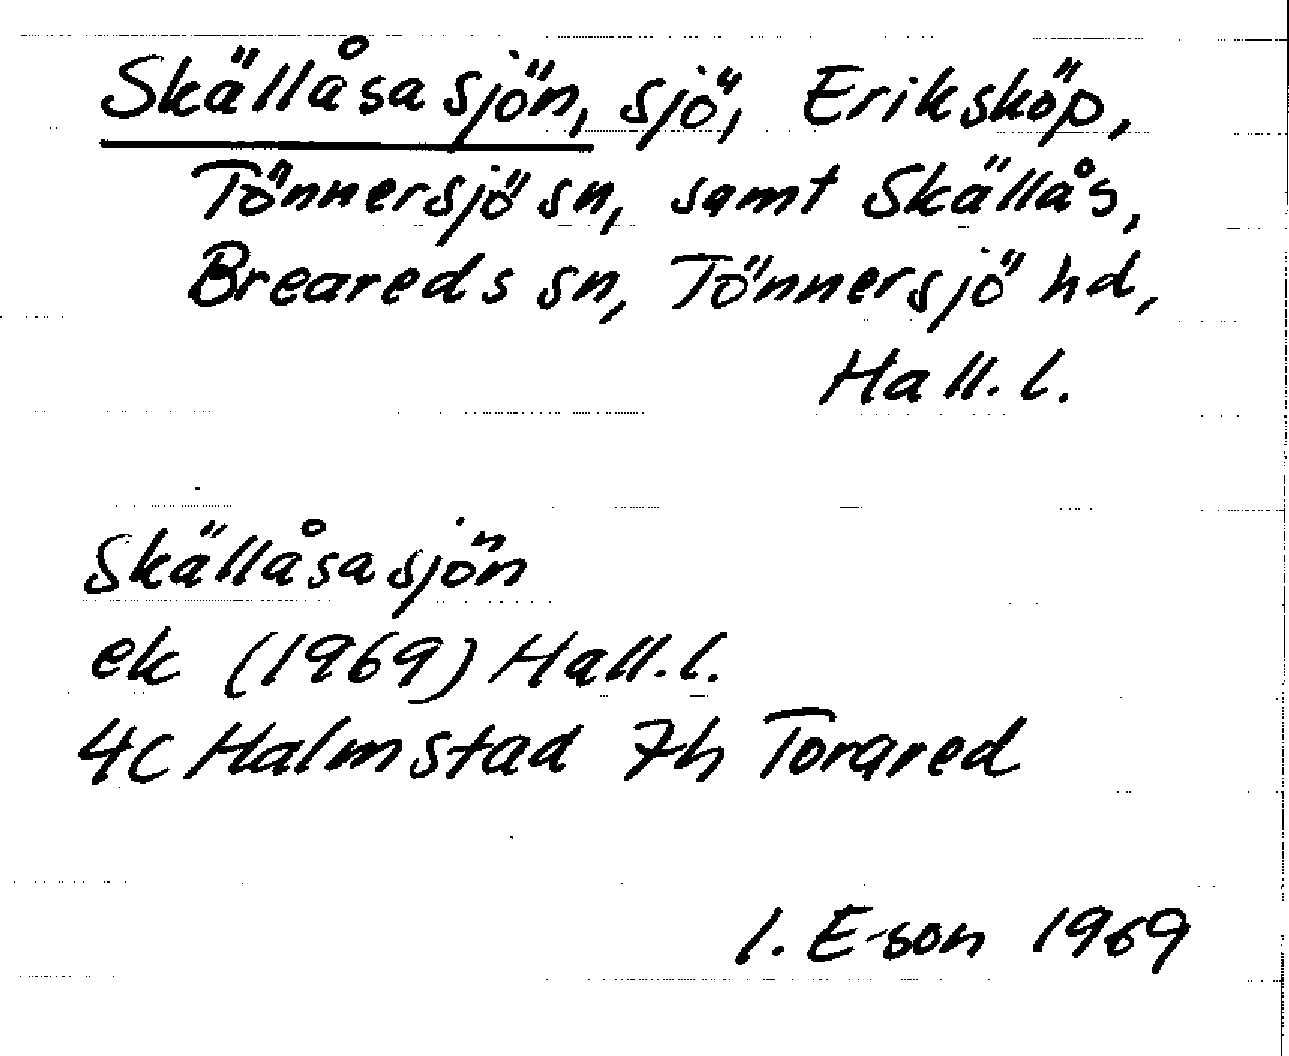 Skällåsasjön, sjö, Eriksköp,
Tönnersjö sn, samt Skällås,
Breareds sn, Tönnersjö hd,
Hall.l.
Skällåsasjön
ek (1969) Hall.l.
4C Halmstad 7h Torared
I. E-son 1969